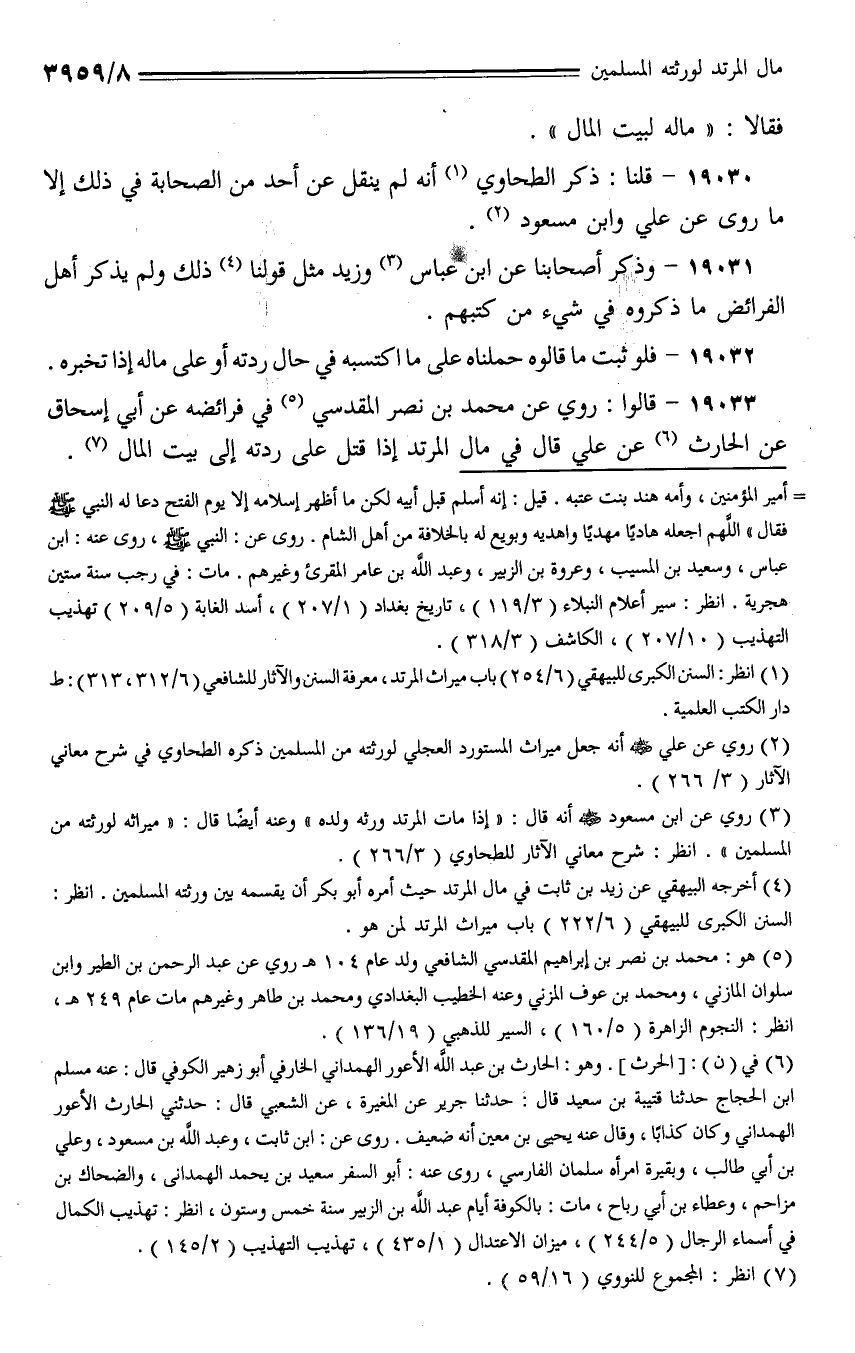 مال المرتد لورثته المسلمين ٣٩٥٩/٨
فقالا : « ماله لبيت المال » .
١٩٠٣٠ - قلنا : ذكر الطحاوي (١) أنه لم ينقل عن أحد من الصحابة في ذلك إلا
ما روى عن علي وابن مسعود (٢) .
١٩٠٣١ - وذكر أصحابنا عن ابن عباس (٣) وزيد مثل قولنا (٤) ذلك ولم يذكر أهل
الفرائض ما ذكروه في شيء من كتبهم .
١٩٠٣٢ - فلو ثبت ما قالوه حملناه على ما اكتسبه في حال ردته أو على ماله إذا تخبره .
١٩٠٣٣ - قالوا : روي عن محمد بن نصر المقدسي (٥) في فرائضه عن أبي إسحاق
عن الحارث (٦) عن علي قال في مال المرتد إذا قتل على ردته إلى بيت المال (٧) .
= أمير المؤمنين ، وأمه هند بنت عتبه . قيل : إنه أسلم قبل أبيه لكن ما أظهر إسلامه إلا يوم الفتح دعا له النبي ﷺ
فقال » اللَّهم اجعله هاديًا مهديًا واهديه وبويع له بالخلافة من أهل الشام . روى عن : النبي ﷺ ، روى عنه : ابن
عباس ، وسعيد بن المسيب ، وعروة بن الزبير ، وعبد اللَّه بن عامر المقرئ وغيرهم . مات : في رجب سنة ستين
هجرية . انظر : سير أعلام النبلاء ( ١١٩/٣ ) ، تاريخ بغداد ( ٢٠٧/١ ) ، أسد الغابة ( ٢٠٩/٥ ) تهذيب
التهذيب ( ٢٠٧/١٠ ) ، الكاشف ( ٣١٨/٣ ) .
(١) انظر : السنن الكبرى للبيهقي ( ٢٥٤/٦ ) باب ميراث المرتد ، معرفة السنن والآثار للشافعي ( ٣١٢/٦ ، ٣١٣ ) : ط
دار الكتب العلمية .
(٢) روي عن علي ﷺ أنه جعل ميراث المستورد العجلي لورثته من المسلمين ذكره الطحاوي في شرح معاني
الآثار ( ٣/ ٢٦٦ ) .
(٣) روي عن ابن مسعود ﷺ أنه قال : « إذا مات المرتد ورثه ولده » وعنه أيضًا قال : « ميراثه لورثته من
المسلمين » . انظر : شرح معاني الآثار للطحاوي ( ٢٦٦/٣ ) .
(٤) أخرجه البيهقي عن زيد بن ثابت في مال المرتد حيث أمره أبو بكر أن يقسمه بين ورثته المسلمين . انظر :
السنن الكبرى للبيهقي ( ٢٢٢/٦ ) باب ميراث المرتد لمن هو .
(٥) هو : محمد بن نصر بن إبراهيم المقدسي الشافعي ولد عام ١٠٤ هـ روي عن عبد الرحمن بن الطير وابن
سلوان المازني ، ومحمد بن عوف المزني وعنه الخطيب البغدادي ومحمد بن طاهر وغيرهم مات عام ٢٤٩ هـ ،
انظر : النجوم الزاهرة ( ١٦٠/٥ ) ، السير للذهبي ( ١٣٦/١٩ ) .
(٦) في ( ن ) : [ الحرث ] . وهو : الحارث بن عبد اللَّه الأعور الهمداني الخارفي أبو زهير الكوفي قال : عنه مسلم
ابن الحجاج حدثنا قتيبة بن سعيد قال : حدثنا جرير عن المغيرة ، عن الشعبي قال : حدثني الحارث الأعور
الهمداني وكان كذابًا ، وقال عنه يحيى بن معين أنه ضعيف . روى عن : ابن ثابت ، وعبد اللَّه بن مسعود ، وعلي
بن أبي طالب ، وبقيرة امرأه سلمان الفارسي ، روى عنه : أبو السفر سعيد بن يحمد الهمدانى ، والضحاك بن
مزاحم ، وعطاء بن أبي رباح ، مات : بالكوفة أيام عبد اللَّه بن الزبير سنة خمس وستون ، انظر : تهذيب الكمال
في أسماء الرجال ( ٢٤٤/٥ ) ، ميزان الاعتدال ( ٤٣٥/١ ) ، تهذيب التهذيب ( ١٤٥/٢ ) .
(٧) انظر : المجموع للنووي ( ٥٩/١٦ ) .